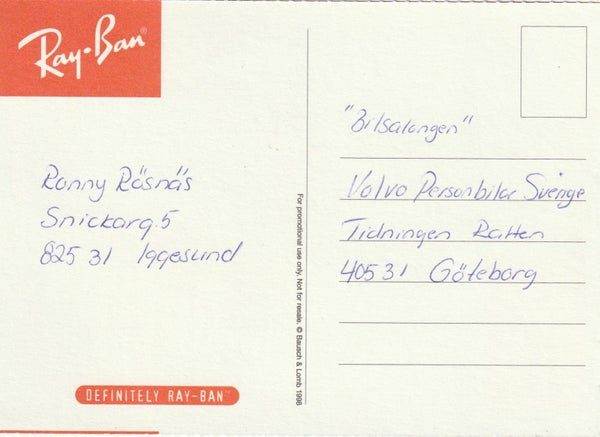 Ray-Ban
Ronny Råsnäs
Snickarg. 5
825 31 Iggesund
DEFINITELY RAY-BAN™
For promotional use only. Not for resale. © Bausch & Lomb 1998
"Bilsalongen"
Volvo Personbilar Sverige
Tidningen Ratten
405 31 Göteborg